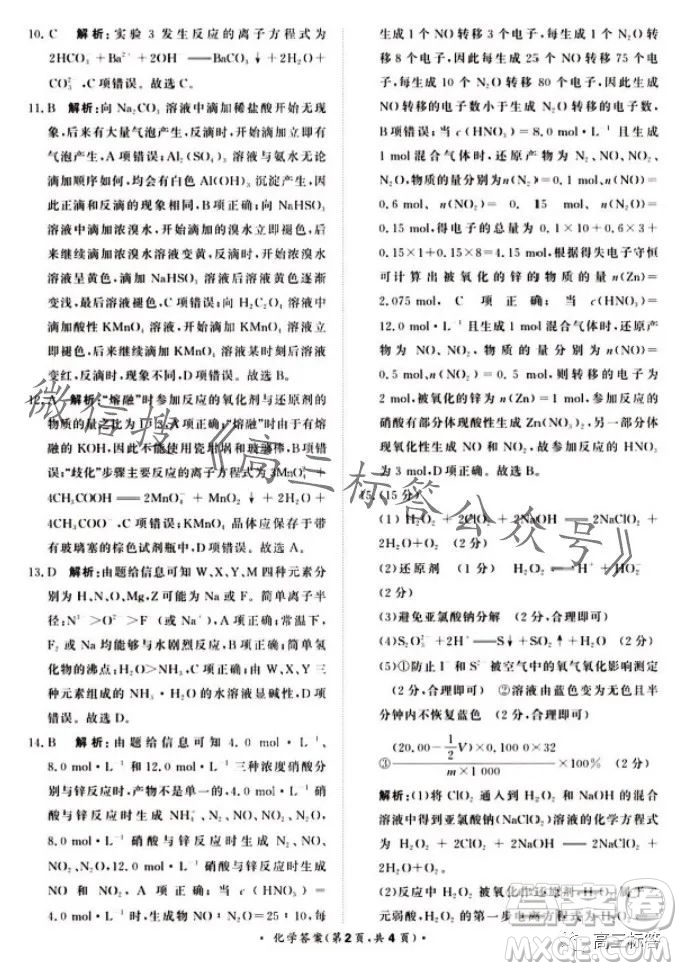 10. C 解析:实验 3 发生反应的离子方程式为
2HCO₃⁻+Ba²⁺+2OH⁻══BaCO₃↓+2H₂O+
CO₃²⁻,C项错误。故选 C。
11. B 解析:向 Na₂CO₃ 溶液中滴加稀盐酸开始无现
象,后来有大量气泡产生,反滴时,开始滴加立即有
气泡产生,A 项错误;Al₂(SO₄)₃ 溶液与氨水无论
滴加顺序如何,均会有白色 Al(OH)₃ 沉淀产生,因
此正滴和反滴的现象相同,B项正确;向 NaHSO₃
溶液中滴加浓溴水,开始滴加的溴水立即褪色,后
来继续滴加浓溴水溶液变黄,反滴时,开始浓溴水
过量,滴入 NaHSO₃ 溶液后浓溴水溶液黄色逐渐
变浅,最后褪色,C项错误;向 H₂C₂O₄ 溶液中开始
滴加酸性 KMnO₄ 溶液,开始滴加 KMnO₄ 溶液立
即褪色,后来继续滴加 KMnO₄ 溶液某时刻后溶液
变红,反滴时,现象不同,D 项错误。故选 B。
12. A 解析:“熔融”时参加反应的氧化剂与还原剂的
物质的量之比为 1:3,A 项正确;“熔融”时有熔
融的 KOH,因此不能使用瓷坩埚和玻璃棒,B项错
误;“歧化”步骤主要反应的离子方程式为 3MnO₄²⁻+
4CH₃COOH══2MnO₄⁻+MnO₂↓+2H₂O+
4CH₃COO⁻,C项错误;高锰酸钾溶液应保存于带
有玻璃塞的棕色试剂瓶中,D项错误。故选 A。
13. D 解析:由题给信息可知 W、X、Y、M 四种元素分
别为 H、N、O、Mg,Z 可能为 Na 或 F。简单离子半
径:N³⁻>O²⁻>F⁻(或 Na⁺),A 项正确;常温下,
F₂ 或 Na 均能够与水剧烈反应,B 项正确;简单氢
化物的沸点:H₂O>NH₃,C 项正确;W、X、Y
三种元素组成的 NH₃·H₂O 的水溶液显碱性,D
项错误。故选 D。
14. B 解析:由题给信息可知 4.0 mol·L⁻¹、
8.0 mol·L⁻¹ 和 12.0 mol·L⁻¹ 三种浓度硝酸分
别与锌反应时,产物不是单一的,4.0 mol·L⁻¹ 硝
酸与锌反应时生成 NH₄⁺、N₂、N₂O、NO、
NO₂,8.0 mol·L⁻¹ 硝酸与锌反应时生成 N₂、
NO、NO₂、N₂O,12.0 mol·L⁻¹ 硝酸与锌反应时
生成 NO 和 NO₂,A 项正确;当 c(HNO₃)=
4.0 mol·L⁻¹ 时生成 NO 占 25%,N₂O 占 10%,每
生成 1 个 NO 转移 3 个电子,每生成 1 个 N₂O 转
移 8 个电子,因此每生成 25 个 NO 转移 75 个电
子,每生成 10 个 N₂O 转移 80 个电子,因此生成
NO 转移的电子数小于生成 N₂O 转移的电子数,
B项错误;当 c(HNO₃)=8.0 mol·L⁻¹ 且生成
1 mol 混合气体时,还原产物为 N₂、NO、NO₂、
N₂O,物质的量分别为n(N₂)=0.1 mol、n(NO)=
0.6 mol、n(NO₂)=0.15 mol、n(N₂O)=
0.15 mol,得电子的总量为 0.1×10+0.6×3+
0.15×1+0.15×8=4.15 mol,根据得失电子守恒
可计算出被氧化的锌的物质的量 n(Zn)=
2.075 mol,C 项正确;当 c(HNO₃)=
12.0 mol·L⁻¹ 且生成1 mol混合气体时,还原产
物为 NO、NO₂,物质的量分别为 n(NO)=
0.5 mol、n(NO₂)=0.5 mol,转移的电子为
2 mol,被氧化的锌为 n(Zn)=1 mol,参加反应的
硝酸有部分体现酸性生成 Zn(NO₃)₂,另一部分体
现氧化性生成 NO 和 NO₂,故参加反应的 HNO₃
为 3 mol,D项正确。故选 B。
15. (15 分)
(1)H₂O₂+2ClO₂+2NaOH══2NaClO₂+
2H₂O+O₂ (2 分)
(2)还原剂 H₂O₂⇌H⁺+HO₂⁻
(2 分)
(3)避免亚氯酸钠分解 (2 分,合理即可)
(4)S₂O₃²⁻+2H⁺══S↓+SO₂↑+H₂O (2 分)
(5)①防止 I⁻ 和 S²⁻ 被空气中的氧气氧化影响测定
(2分,合理即可) ②溶液由蓝色变为无色且半
分钟内不恢复蓝色 (2 分,合理即可)
③(20.00−1/2V)×0.100 0×32/m×1 000×100% (2 分)
解析:(1)将 ClO₂ 通入到 H₂O₂ 和 NaOH 的混合
溶液中得到亚氯酸钠(NaClO₂)溶液的化学方程式
为 H₂O₂+2ClO₂+2NaOH══2NaClO₂+2H₂O+O₂。
(2)反应中 H₂O₂ 被氧化作还原剂,H₂O₂ 属于二
元弱酸,
·化学答案(第2页,共4页)·
微信搜《高三标答公众号》
高三标答